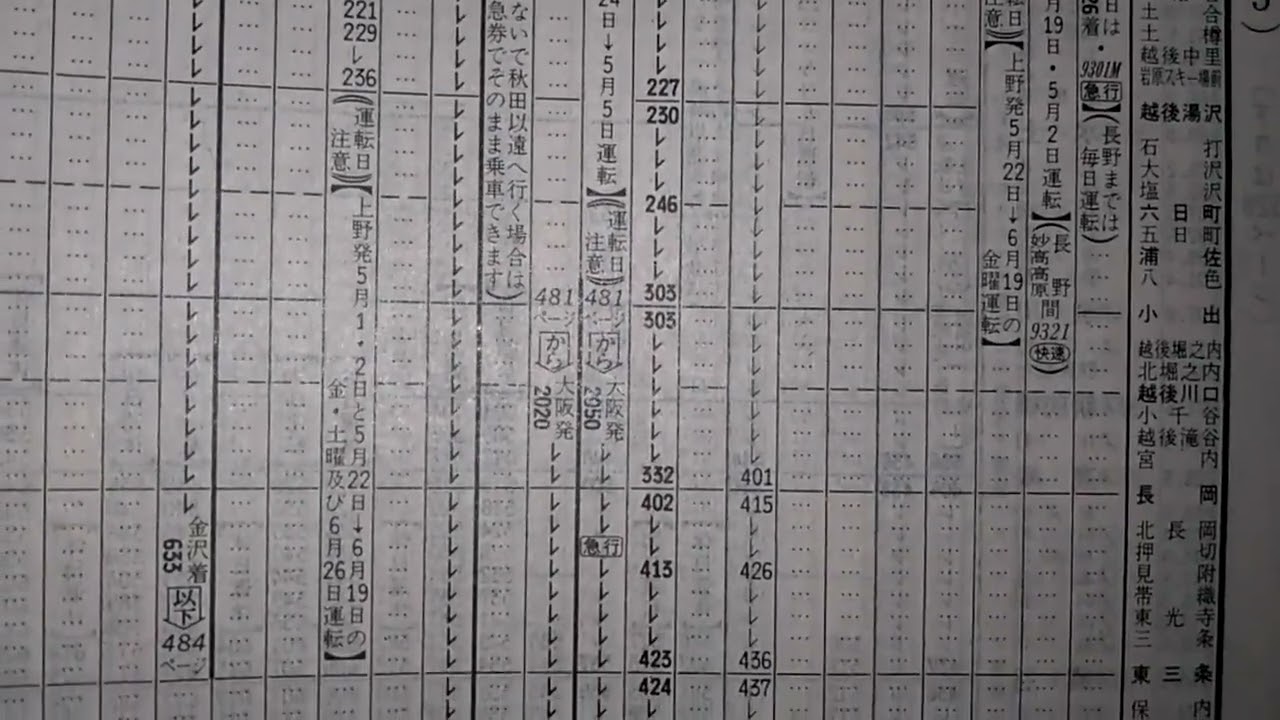 土 合
土 樽
越 後 中 里
岩原スキー場前
越 後 湯 沢
石 打
大 沢
塩 沢
六 日 町
五 日 町
浦 佐
八 色
小 出
越後堀之内
北 堀 之 内
越 後 川 口
小 千 谷
越 後 滝 谷
宮 内
長 岡
北 長 岡
押 切
見 附
帯 織
東 光 寺
三 条
東 三 条
保 内
日は
着・
9301M
急行
】
(長野までは
毎日運転)
月19日・5月2日運転】
【長野
妙高高原間
9321
快速
転日
注意)
【上野発5月22日→6月19日の
金曜運転】
401
415
426
436
437
227
230
246
303
303
332
402
413
423
424
24日→5月5日運転】
(運転日
注意)
481
ページ
から
大阪発
2950
急行
481
ページ
から
大阪発
2020
ないで秋田以遠へ行く場合は
急券でそのまま乗車できます)
221
229
236
(運転日
注意)
【上野発5月1・2日と5月22日→6月19日の
金・土曜及び6月26日運転】
金沢着
633
以下
484
ページ